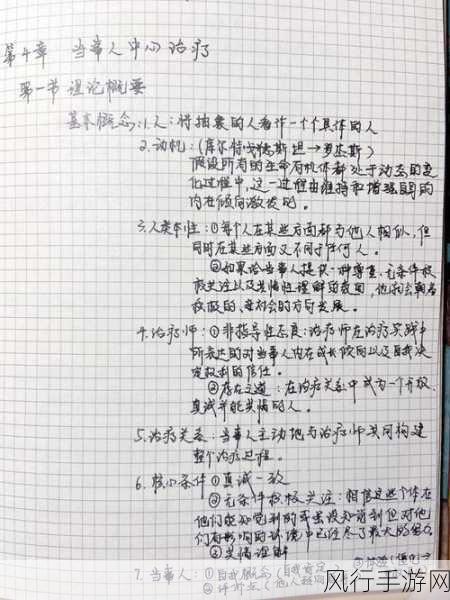 第十章 当事人中心治疗
第一节 理论概要
基本概念:1.人:将抽象的人看作一个个具体的人
2.动机:(库尔特·戈德斯坦→罗杰斯)
假设所有的生命有机体都处于动态的变
化过程中,这一过程由维持和增强自身的
内在倾向激发的。
3.人类本性:①每个人在某些方面都与他人相似,但
同时在某些方面又不同于任何人。
②如果给当事人提供一种尊重、无条件积
极关注以及共情性理解的氛围,他们会朝着
积极的、亲社会的方向发展。
4.治疗师:①非指导性态度:治疗师在治疗实践中
所表达的对当事人内在成长倾向以及自我决
定权利的信任。
②存在之道:在治疗关系中成为一个开放、
真诚并能共情的人。
5.治疗关系:当事人主动地与治疗师共同构建
整个治疗过程。
6.核心条件 ①真诚一致
②无条件积极关注:相信这些个体在
他们能知觉到的
们有影响的环境中已经尽了最大的
③共情理解
7.当事人:①自我概念(自我肯定
②评价点(他人
风行手游网